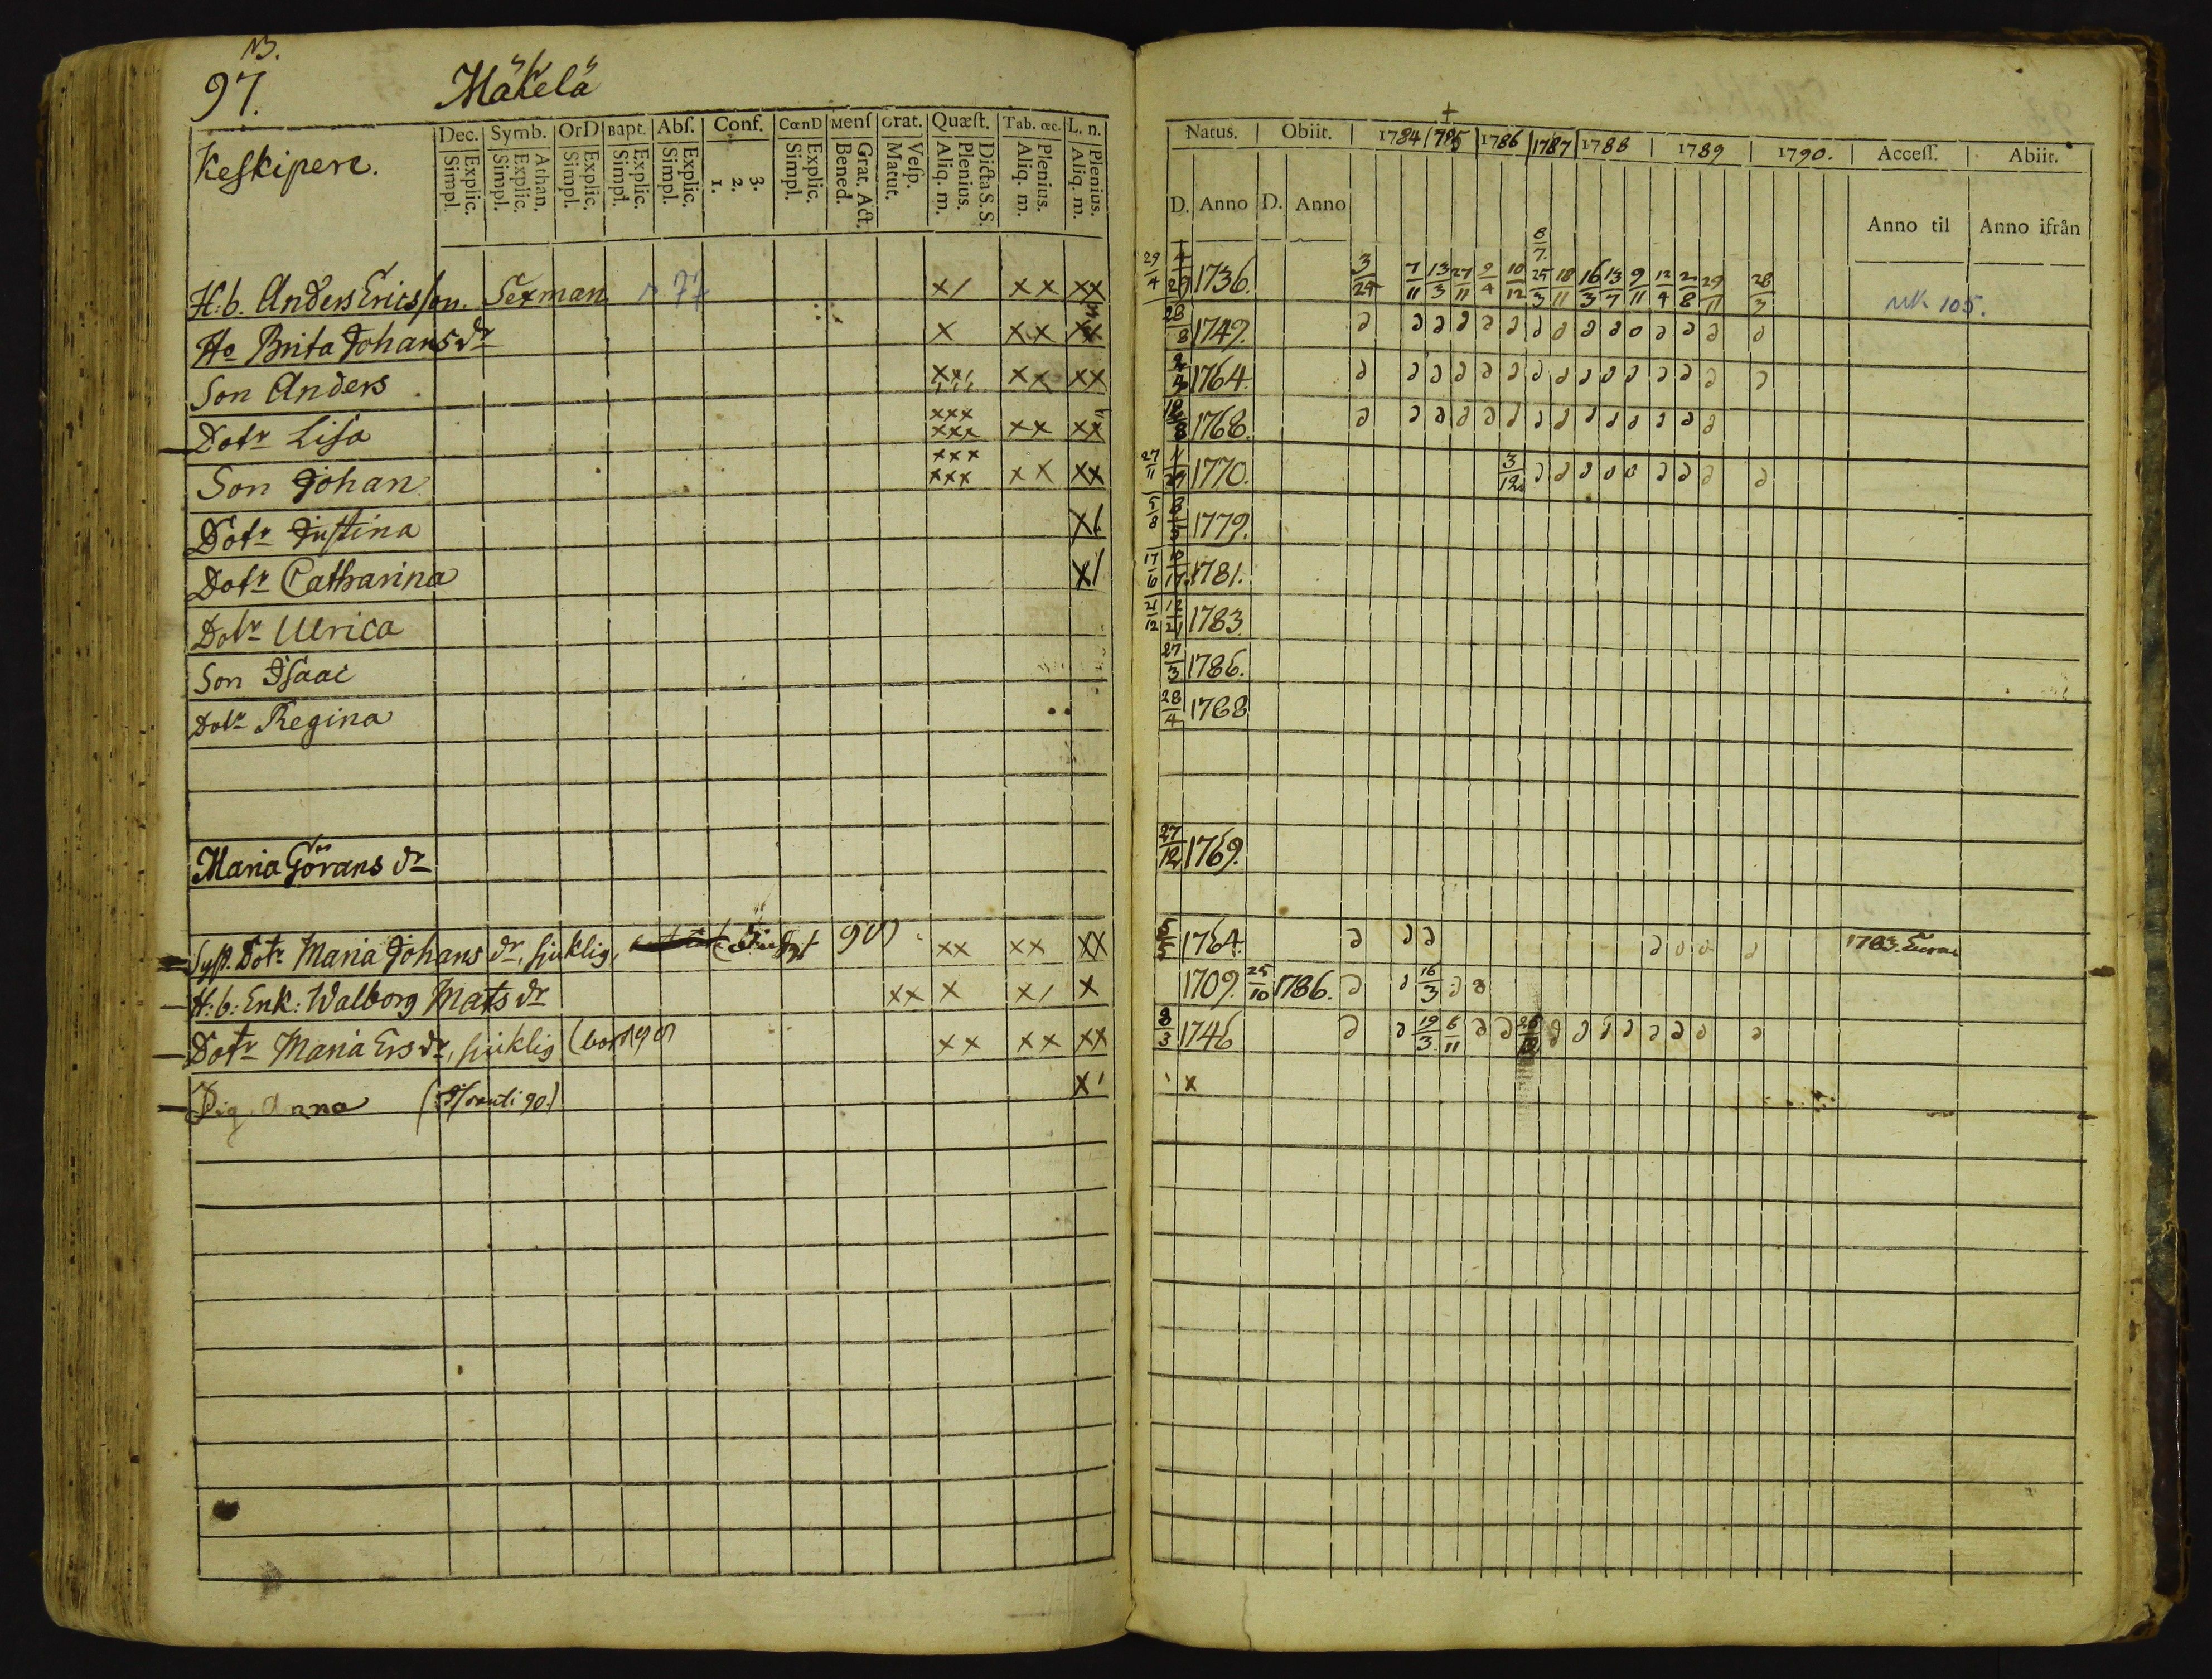 N3.
97. Mäkelä
Keskipere.
Dec. Symb. OrD Bapt. Abſ. Conf. CœnD Menſ Grat. Quæſt. Tab. œc. L. n.
Explic. Simpl. Athan. Explic. Simpl. Explic. Simpl. Explic. Simpl. Explic. Simpl. 1. 2. 3. Explic. Simpl. Grat. Act. Bened. Veſp. Matut. Dicta S. S. Plenius. Aliq. m. Plenius. Aliq. m. Plenius. Aliq. m.
H: b. Anders Ericsson. Sexman 77 x/ xx xx
Ho Brita Johans dr x xx xx
Son Anders xx/ xx xx
Dotr Lisa xxx xxx xx xx
Son Johan xxx xxx xx xx
Dotr Justina x/
Dotr Catharina x/
Dotr Ulrica
Son Isaac
Dotr Regina
Maria Görans dr
Syst. Dotr Maria Johans dr, sjuklig, 90) xx xx xx
H: b: Enk: Walborg Mats dr xx x x/ x
Dotr Maria Ers dr, sjuklig (bort 90) xx xx xx
Pig. Anna 90.) x/
Natus. Obiit. 1784 1785 1786 1787 1788 1789 1790. Acceſſ. Abiit.
D. Anno D. Anno Anno til Anno ifrån
29/4 1736. 3/24 7/11 13/3 27/11 9/4 10/12 8/7. 25/3 18/11 16/3 13/7 9/11 12/4 2/8 29/11 28/3 uk 105.
28/8 1749.
1764.
1768.
27/11 11/27 1770. 3/12
5/8 8/5 1779.
17/6 10/17 1781.
21/12 12/21 1783.
27/3 1786.
28/4 1788
27/12 1769.
5/5 1764. 1783. Eura
1709. 25/10 1786. 16/3
8/3 1746 19/3 6/11
/ x